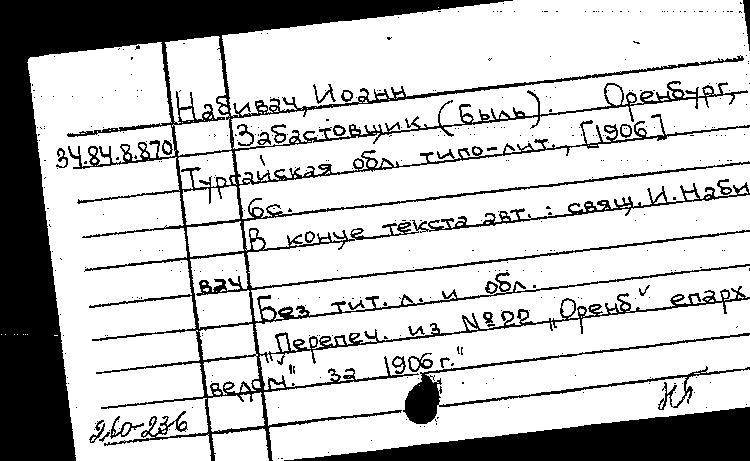 Набивач, Иоанн
34.84.8.870 Забастовщик. (Быль). Оренбург,
Тургайская обл. типо-лит., [1906]
6с.
В конце текста авт. : свящ. И. Наби
вач
Без тит. л. и обл.
"Перепеч. из №22 „Оренб. епарх
ведом." за 1906 г."
210-236